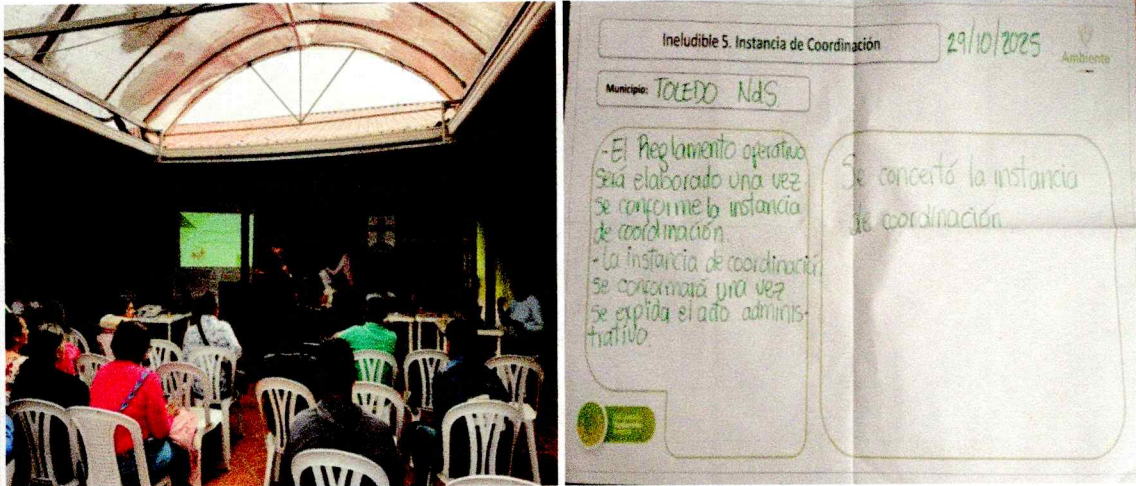 Ineludible 5. Instancia de Coordinación
29/10/2025
Ambiente
Municipio: TOLEDO NdS
- El Reglamento operativo
será elaborado una vez
se conforme la instancia
de coordinación.
- La instancia de coordinación
se conformará una vez
se expida el acto adminis-
trativo.
Se concertó la instancia
de coordinación